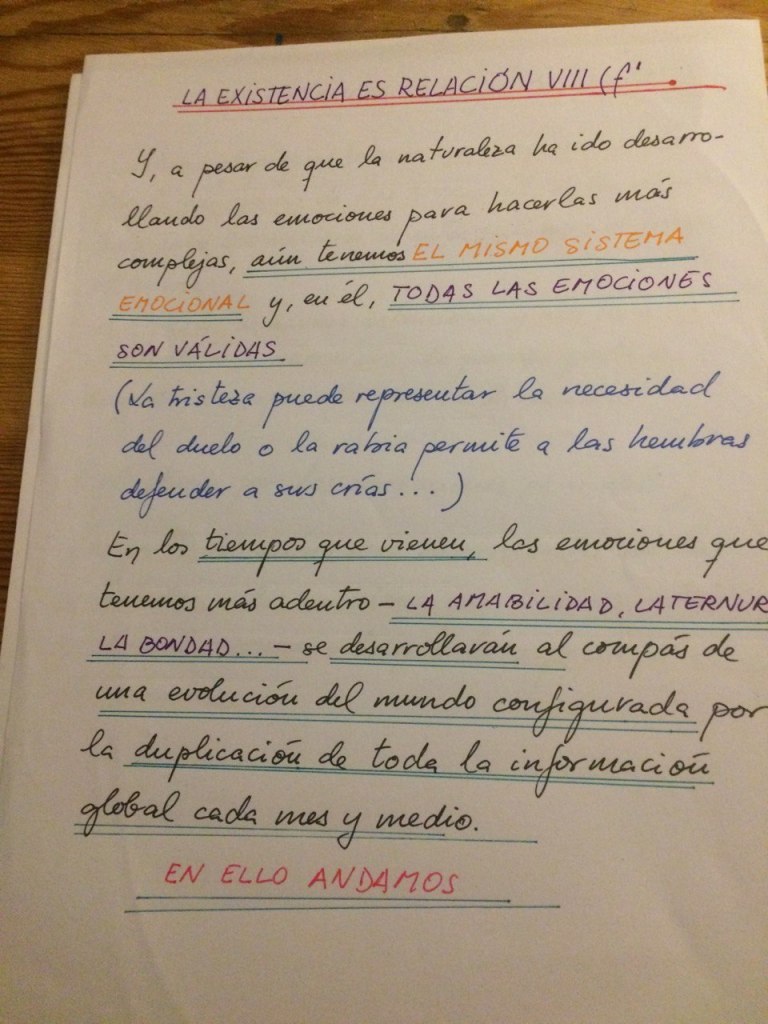 LA EXISTENCIA ES RELACIÓN VIII (f'.
Y, a pesar de que la naturaleza ha ido desarro-
llando las emociones para hacerlas más
complejas, aún tenemos EL MISMO SISTEMA
EMOCIONAL y, en él, TODAS LAS EMOCIONES
SON VÁLIDAS
(La tristeza puede representar la necesidad
del duelo o la rabia permite a las hembras
defender a sus crías...)
En los tiempos que vienen, las emociones que
tenemos más adentro - LA AMABILIDAD, LA TERNUR
LA BONDAD... - se desarrollarán al compás de
una evolución del mundo configurada por
la duplicación de toda la información
global cada mes y medio.
EN ELLO ANDAMOS